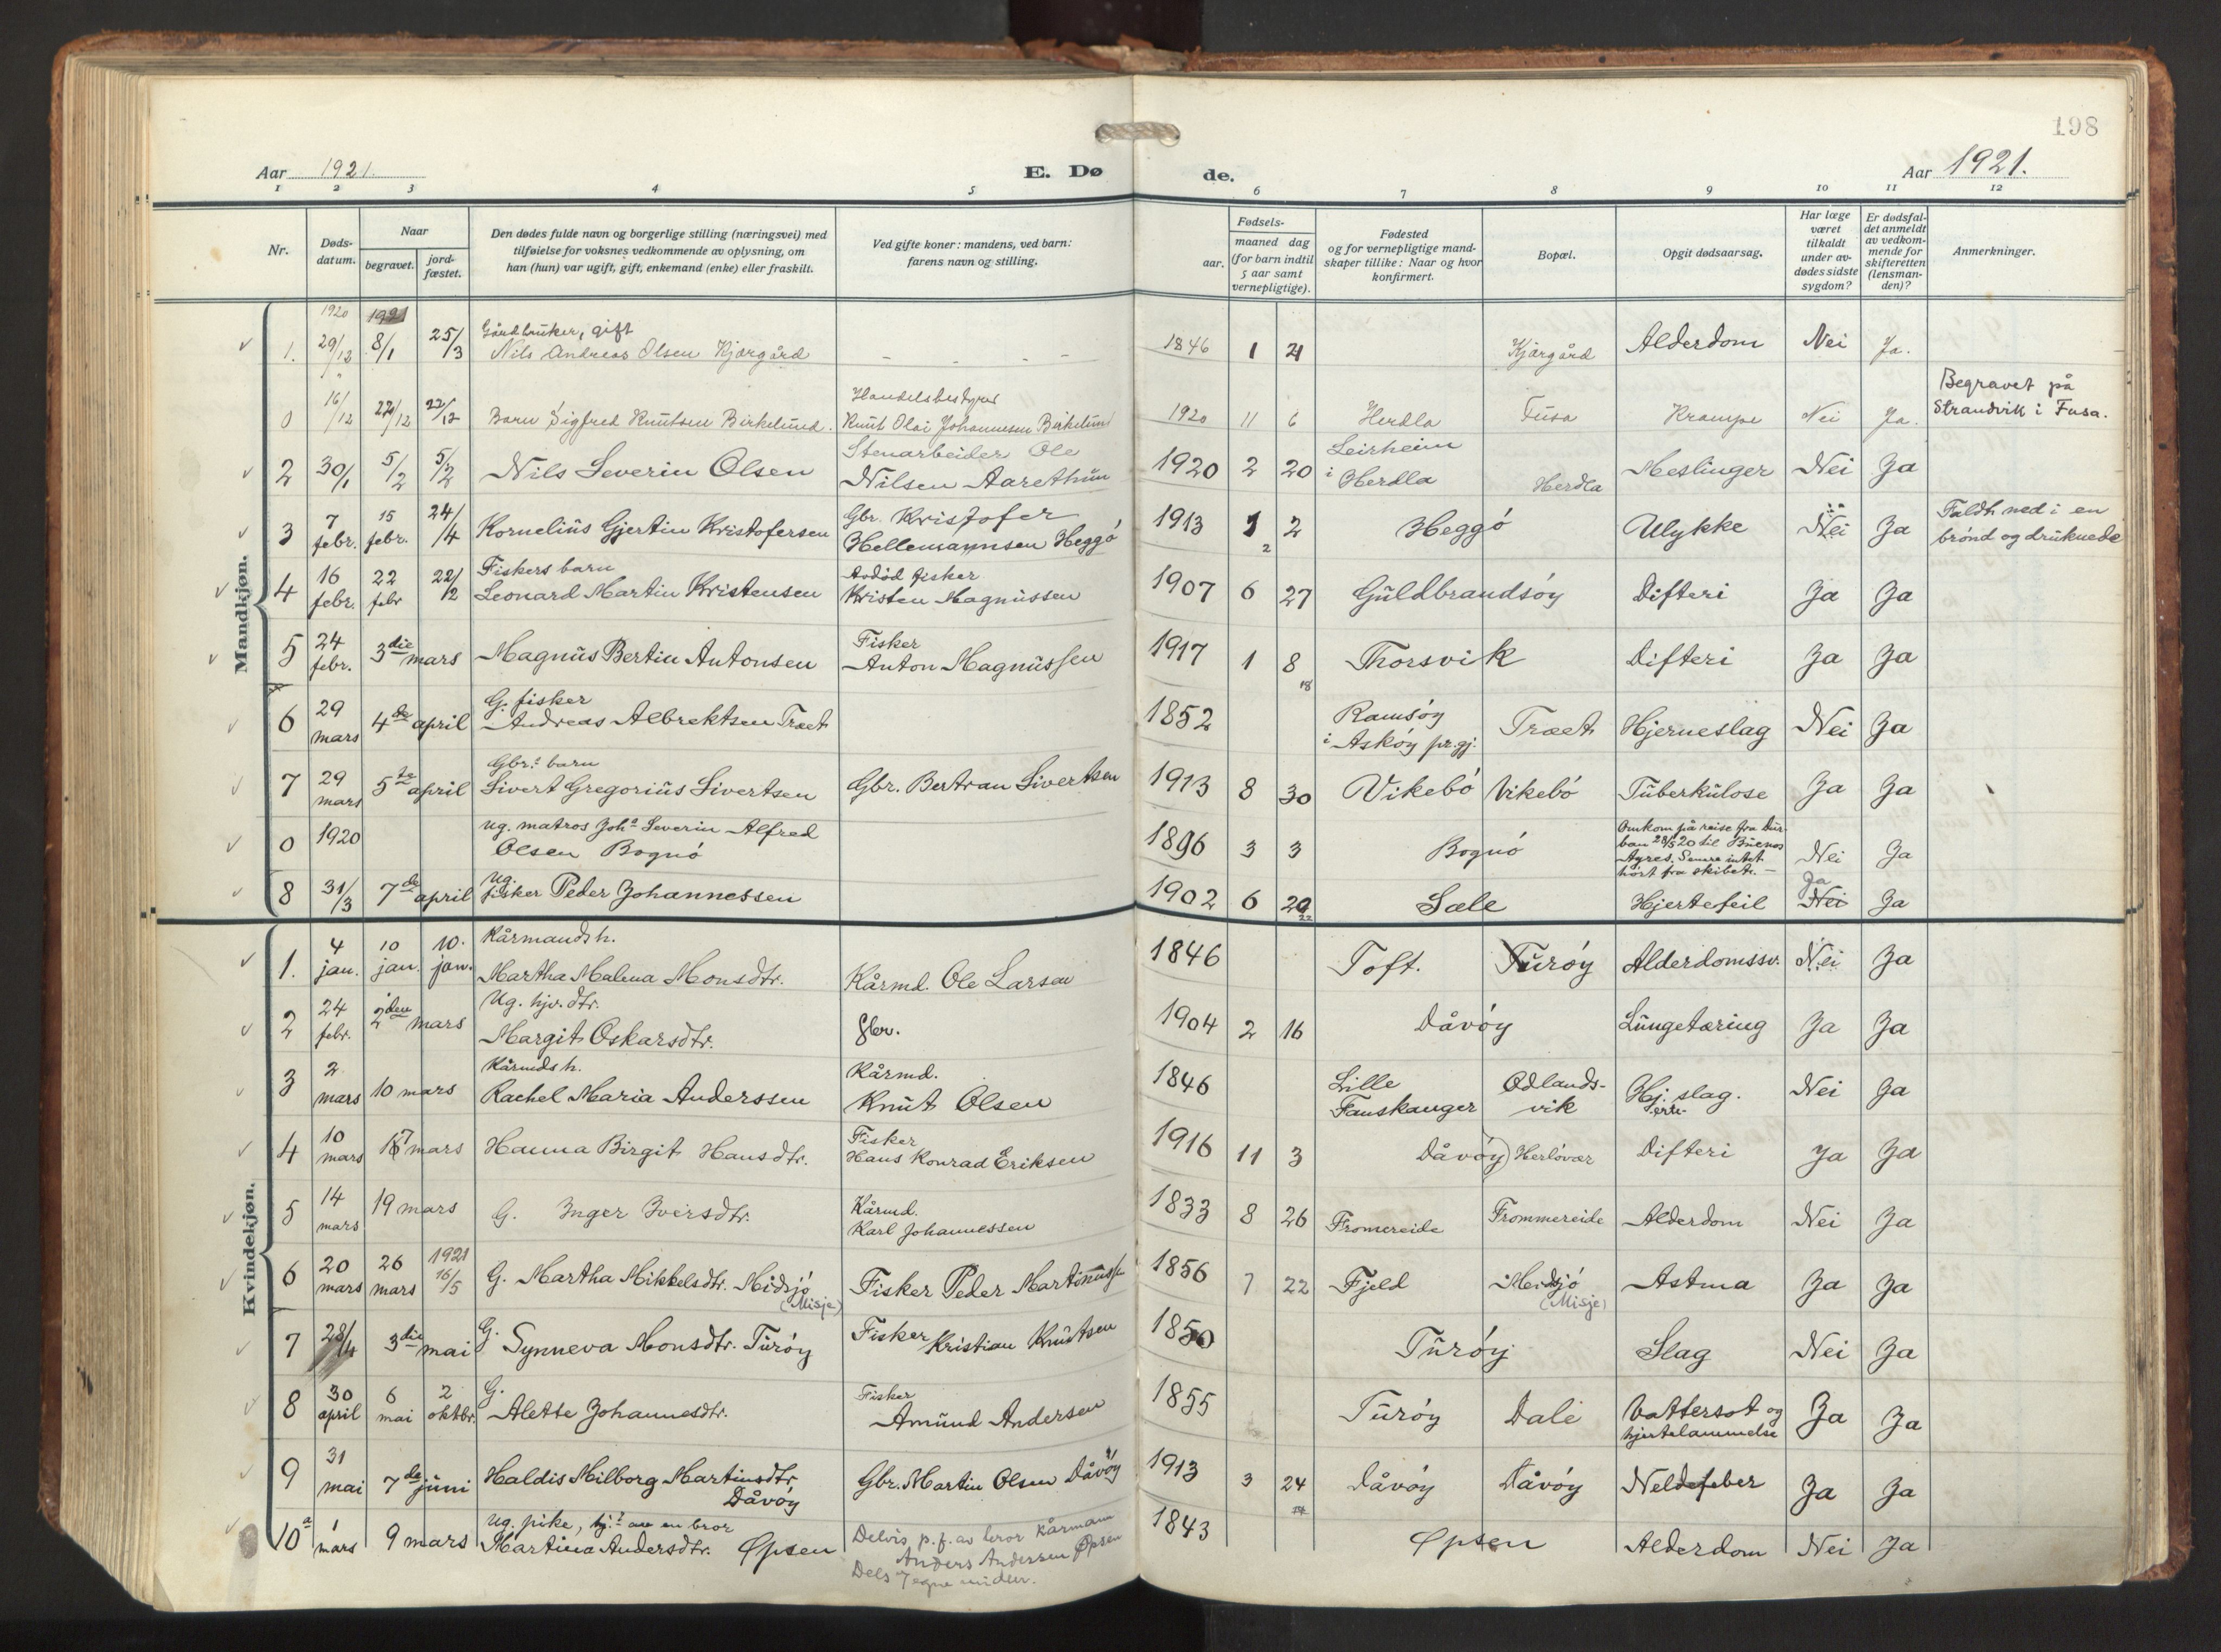 198
Aar 1921.
E. Dø
de.
Aar 1921.
1 2 3 4 5 6 7 8 9 10 11 12
Nr.
Døds-
datum.
Naar
begravet.
jord-
fæstet.
Den dødes fulde navn og borgerlige stilling (næringsvei) med
tilføielse for voksnes vedkommende av oplysning, om
han (hun) var ugift, gift, enkemand (enke) eller fraskilt.
Ved gifte koner: mandens, ved barn:
farens navn og stilling.
Fødsels-
aar.
maaned dag
(for barn indtil
5 aar samt
vernepligtige).
Fødested
og for vernepligtige mand-
skaper tillike: Naar og hvor
konfirmert.
Bopæl.
Opgit dødsaarsag.
Har læge
været
tilkaldt
under av-
dødes sidste
sygdom?
Er dødsfal-
det anmeldt
av vedkom-
mende for
skifteretten
(lensman-
den)?
Anmerkninger.
Mandkjøn.
1920 1921
Gårdbruker, gift
1. 29/12 8/1 25/3 Nils Andreas Olsen Kjærgård - - - - 1846 1 21 Kjærgård Alderdom Nei Ja.
Handelsbestyrer
Begravet på
0 16/12 22/12 22/12 Barn Sigfred Knutsen Birkelund. Knut Olai Johannesen Birkelund 1920 11 6 Herdla Fusa Krampe Nei Ja. Strandvik i Fusa.
Stenarbeider Ole
Leirheim
2 30/1 5/2 5/2 Nils Severin Olsen Nilsen Aarethun 1920 2 20 i Herdla Herdla Meslinger Nei Ja
Gbr. Kristofer
Faldt ned i en
3 7 febr. 15 febr. 24/4 Kornelius Gjertin Kristofersen Hellemannsen Heggö 1913 1 2 2 Heggö Ulykke Nei Ja brönd og druknede
Fiskers barn
Avdöd fisker
4 16 febr. 22 febr 22/2 Leonard Martin Kristensen Kristen Magnussen 1907 6 27 Guldbrandsöy Difteri Ja Ja
Fisker
5 24 febr. 3die mars Magnus Bertin Antonsen Anton Magnussen 1917 1 8 18 Thorsvik Difteri Ja Ja
G. fisker
Ramsöy
6 29 mars 4de april Andreas Albrektsen Træet 1852 i Asköy pr.gj. Træet Hjerneslag Nei Ja
Gbr.s barn
7 29 mars 5te april Sivert Gregorius Sivertsen Gbr. Bertran Sivertsen 1913 8 30 Vikebö Vikebö Tuberkulose Ja Ja
ug. matros Johs Severin Alfred
Omkom på reise fra Dur-
ban 28/5 20 til Buenos
0 1920 Olsen Bognö 1896 3 3 Bognö Ayres. Senere intet Nei Ja
hört fra skibet. -
ug.
Ja
8 31/3 7de april fisker Peder Johannessen 1902 6 20 22 Sæle Hjertefeil Nei Ja
Kvindekjøn.
Kårmands h.
1. 4 jan. 10 jan. 10. jan. Martha Malena Monsdtr. Kårmd. Ole Larsen 1846 Toft. Turöy Alderdomssv. Nei Ja
Ug. hjv. dtr.
2 24 febr. 2den mars Margit Oskarsdtr. Gbr. 1904 2 16 Dåvöy Lungetæring Ja Ja
Kårmds h.
Kårmd.
Lille
Odlands-
3 2 mars 10 mars Rachel Maria Anderssen Knut Olsen 1846 Fauskanger vik Hj. slag. Nei Ja
erte-
Fisker
4 10 mars 17 mars Hanna Birgit Hansdtr. Hans Konrad Eriksen 1916 11 3 Dåvöy) Herlövær Difteri Ja Ja
Kårmd.
5 14 mars 19 mars G. Inger Iversdtr. Karl Johannessen 1833 8 26 Fromereide Frommereide Alderdom Nei Ja
1921
6 20 mars 26 mars 16/5 G. Martha Mikkelsdtr. Midsjö Fisker Peder Martinussen 1856 7 22 Fjeld Midsjö Astma Ja Ja
(Misje)
(Misje)
7 28/4 3die mai G. Synneva Monsdtr. Turöy Fisker Kristian Knutsen 1850 Turöy Slag Nei Ja
G.
Fisker
8 30 april 6 mai 2 oktbr. Alette Johannesdtr. Amund Andersen 1855 Turöy Dale Vattersot og Ja Ja
hjertelammelse
9 31 mai 7de juni Haldis Milborg Martinsdtr Gbr. Martin Olsen Dåvöy 1913 3 24 Dåvöy Dåvöy Neldefeber Ja Ja
Dåvöy
Ug. pike, hj. av en bror
10a 1 mars 9 mars Martina Andersdtr. Øpsen Delvis p.f. av bror kårmann 1843 Øpsen Alderdom Nei Ja
Anders Andersen Øpsen
Dels egne midler.